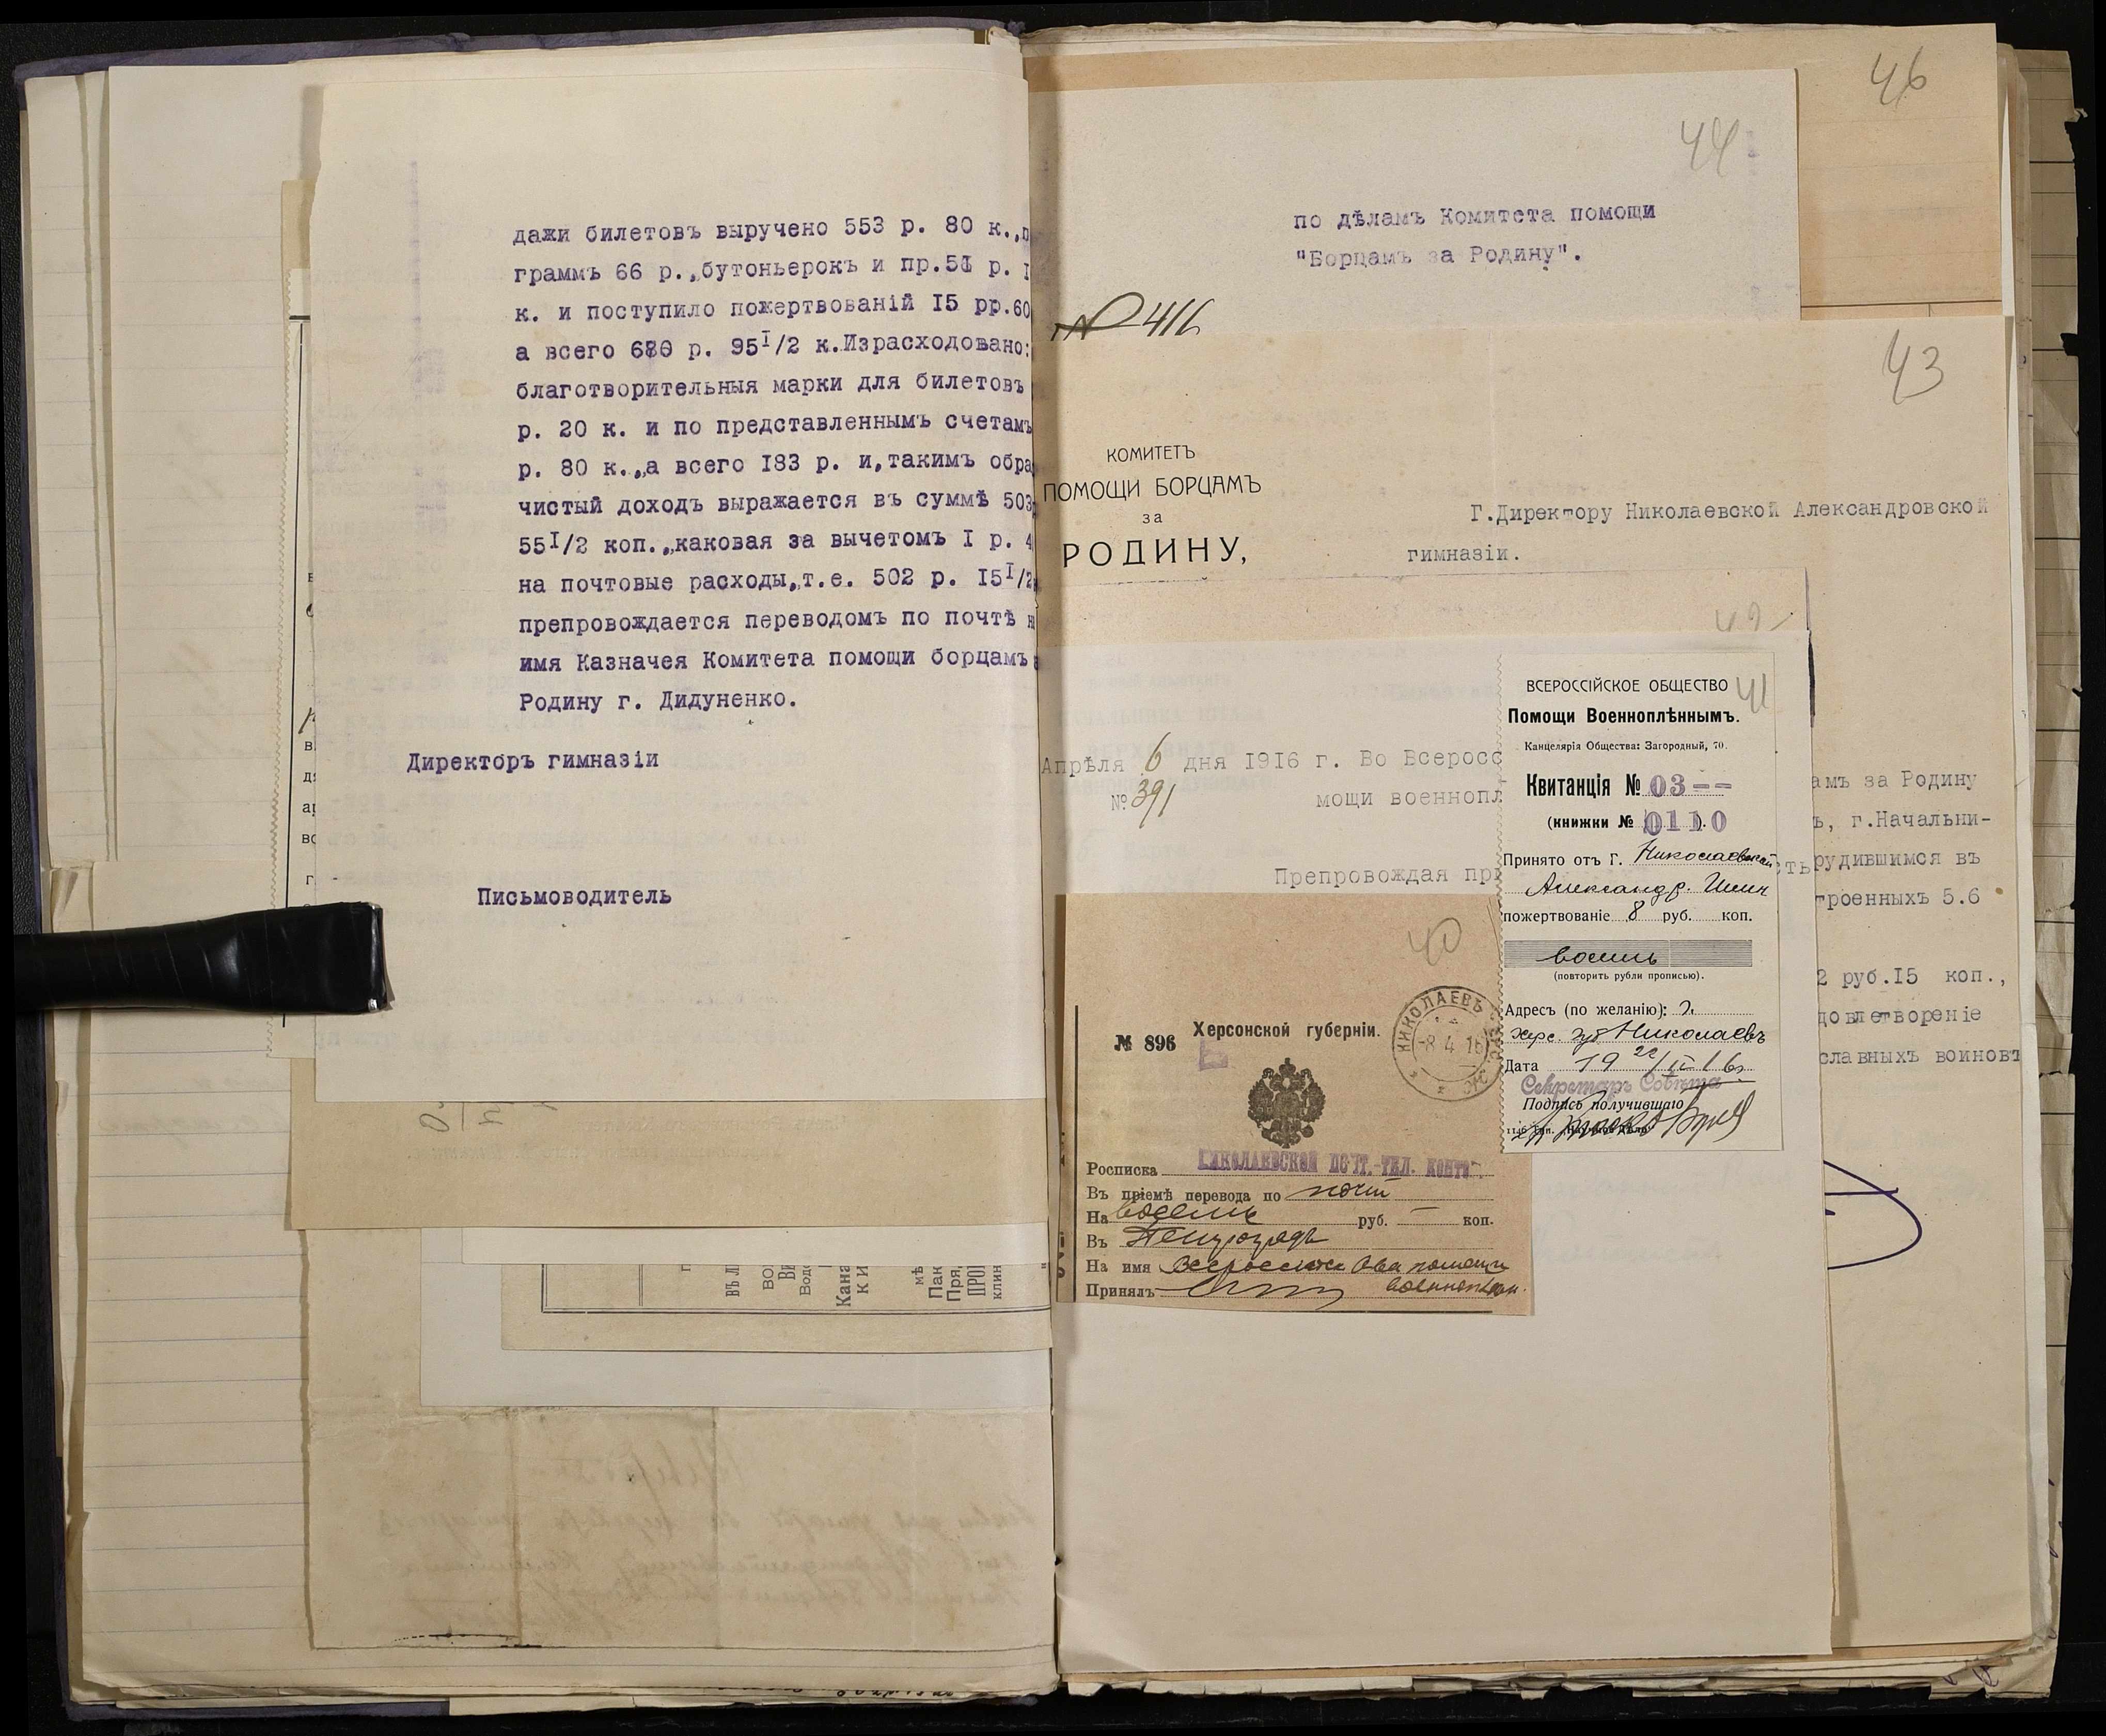 дажи билетовъ выручено 553 р. 80 к.,п
граммъ 66 р.,бутоньерокъ и пр.51 р. I
к. и поступило пожертвованій I5 рр.60
а всего 680 р. 95I/2 к.Израсходовано:
благотворительныя марки для билетовъ
р. 20 к. и по представленнымъ счетамъ
р. 80 к.,а всего I83 р. и,такимъ обра
чистый доходъ выражается въ суммѣ 503
55I/2 коп.,каковая за вычетомъ I р. 4
на почтовые расходы,т.е. 502 р. I5I/2
препровождается переводомъ по почтѣ н
имя Казначея Комитета помощи борцамъ
Родину г. Дидуненко.
Директоръ гимназіи
Письмоводитель
46
44
по дѣламъ Комитета помощи
"Борцамъ за Родину".
№ 416
43
КОМИТЕТЪ
ПОМОЩИ БОРЦАМЪ
за
РОДИНУ,
Г.Директору Николаевской Александровской
гимназіи.
42
Апрѣля 6 дня 1916 г. Во Всеросс
№ 391
мощи военнопл
Препровождая при
сть
амъ за Родину
ъ, г.Начальни-
рудившимся въ
троенныхъ 5.6
2 руб.I5 коп.,
довлетвореніе
славныхъ воиновъ
41
ВСЕРОССІЙСКОЕ ОБЩЕСТВО
Помощи Военноплѣннымъ.
Канцелярія Общества: Загородный, 70.
Квитанція № 03--
(книжки № 0110).
Принято отъ г. Николаевской
Александр. Гимн
пожертвованіе 8 руб. коп.
восемь
(повторить рубли прописью).
Адресъ (по желанію): г.
Херс. губ Николаевъ
Дата 19 22/IV 16г.
Секретарь Совѣта
Подпись получившаго
40
НИКОЛАЕВЪ ХЕРС.
-8 4 16
№ 896 Херсонской губерніи.
Росписка НИКОЛАЕВСКОЙ ПОЧТ.-ТЕЛ. КОНТО
Въ пріемѣ перевода по почт
На восемь руб. — коп.
Въ Петроградъ
На имя Всероссійск Ова помощи
военноплѣн.
Принялъ